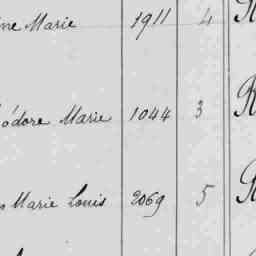 ne Marie 1911 4
odore Marie 1044 3
Marie Louis 2069 5